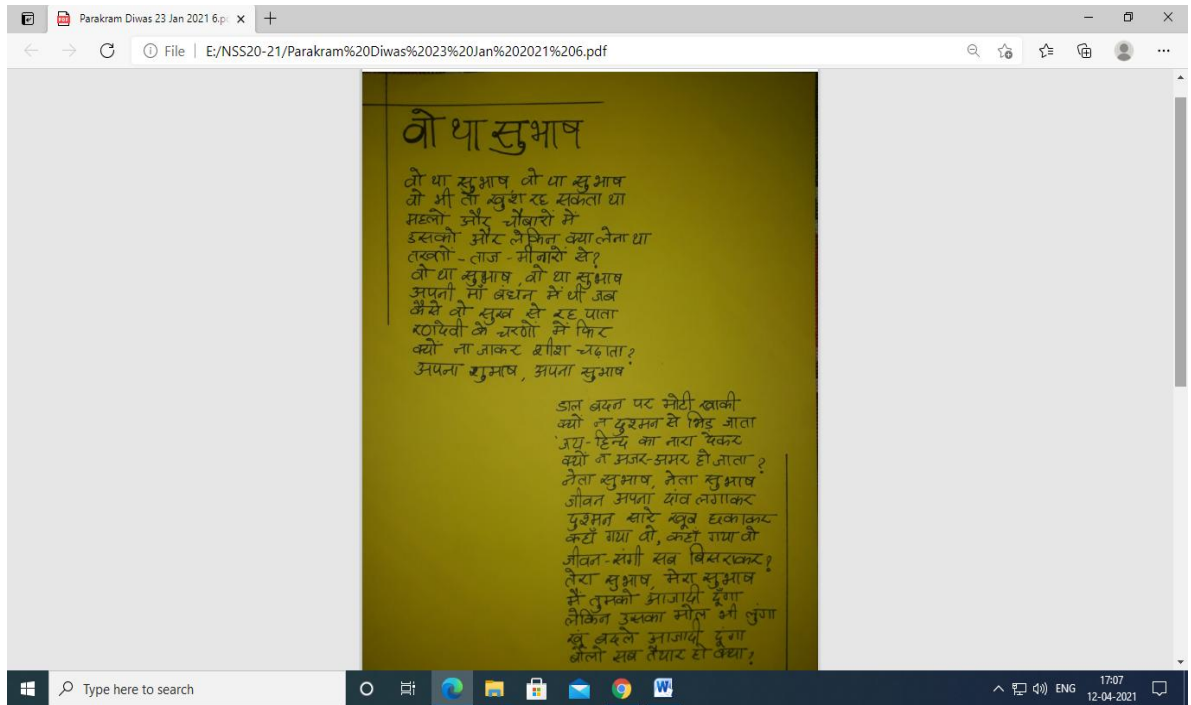 Parakram Diwas 23 Jan 2021 6.p
File | E:/NSS20-21/Parakram%20Diwas%2023%20Jan%202021%206.pdf
वो था सुभाष
वो था सुभाष, वो था सुभाष
वो भी तो खुश रह सकता था
महलो और चौबारों में
उसको और लेकिन क्या लेना था
तख्तों - ताज - मीनारों से?
वो था सुभाष, वो था सुभाष
अपनी माँ बंधन में थी जब
कैसे वो सुख से रह पाता
रणदेवी के चरणों में फिर
क्यों ना जाकर शीश चढ़ाता?
अपना सुभाष, अपना सुभाष
डाल बदन पर मोटी खाकी
क्यों न दुश्मन से भिड़ जाता
'जय-हिन्द का नारा देकर
क्यों न अजर-अमर हो जाता?
नेता सुभाष, नेता सुभाष
जीवन अपना दांव लगाकर
दुश्मन सारे खूब छकाकर
कहाँ गया वो, कहाँ गया वो
जीवन-संगी सब बिसराकर?
तेरा सुभाष, मेरा सुभाष
मैं तुमको आजादी दूँगा
लेकिन उसका मोल भी लुंगा
खूं बदले आजादी दूंगा
बोलो सब तैयार हो क्या?
Type here to search
ENG
17:07
12-04-2021